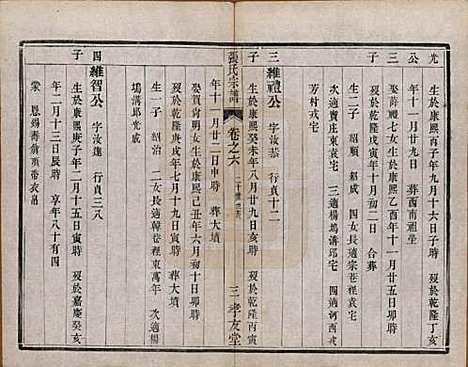 光 生於康熙丙子年九月十六日子時 歿於乾隆丁亥
公 年十一月廿九日 葬西南祖塋
三 娶蔣 七女生於康熙乙酉年十一月廿五日卯時
子 歿於乾隆戊寅年十月初二日 合葬
生二子 紹順 紹成 四女長適宗巷裡袁宅
次適賣庄邱宅 三適楊塢溝邱宅 四適河西戎宅
芳村戎宅
三 維禮公 字汝恭 行貞十二
子 生於康熙癸未年八月廿九日亥時 歿於乾隆丙寅
張氏宗譜 卷之六 三孝友堂
年十一月廿二日申時 葬大墳
娶賀育明女生於康熙己丑年六月初十日卯時
歿於乾隆庚戌年七月十九日寅時 葬大墳
生一子 紹治 二女長適韓巷裡東萬年 次適楊
塢溝邱光威
四 維智公 字汝進 行貞三八
子 生於康熙庚子年二月十五日寅時 歿於嘉慶癸亥
年二月十三日辰時 享年八十有四
蒙 恩錫壽翁頂帶衣帛